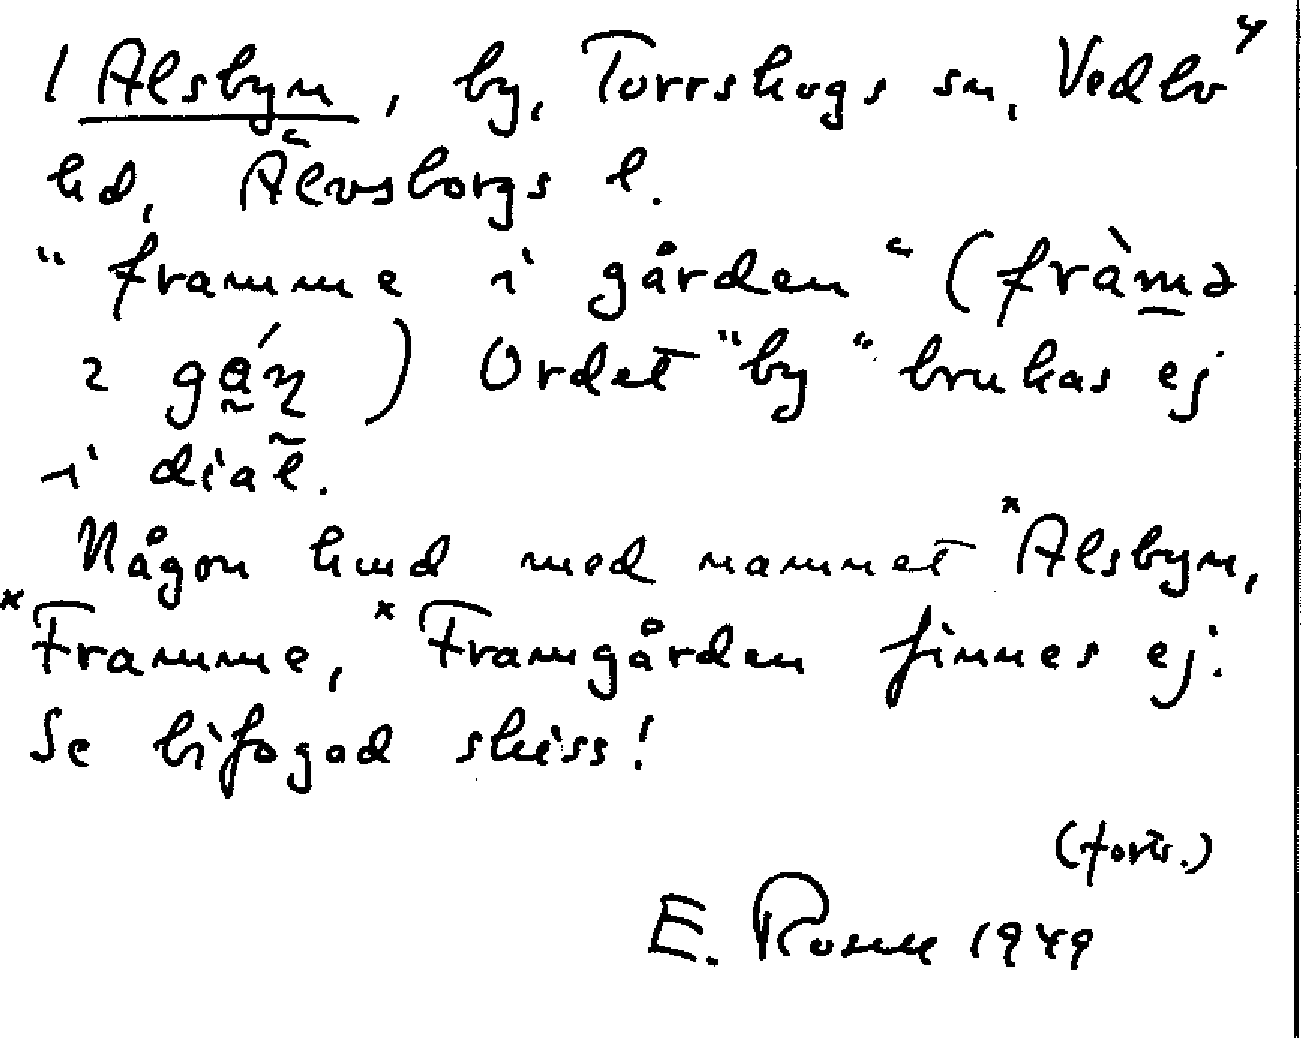 1 Alsbyn, by, Torrskogs sn, Vedbo
hd, Älvsborgs l.
"framme i gården" (fràmə
ɩ gáɳ) Ordet "by" brukas ej
i dial.
Någon hmd med namnet *Alsbyn,
*Framme, *Framgården finnes ej.
Se bifogad skiss!
(forts.)
E. Rosell 1949